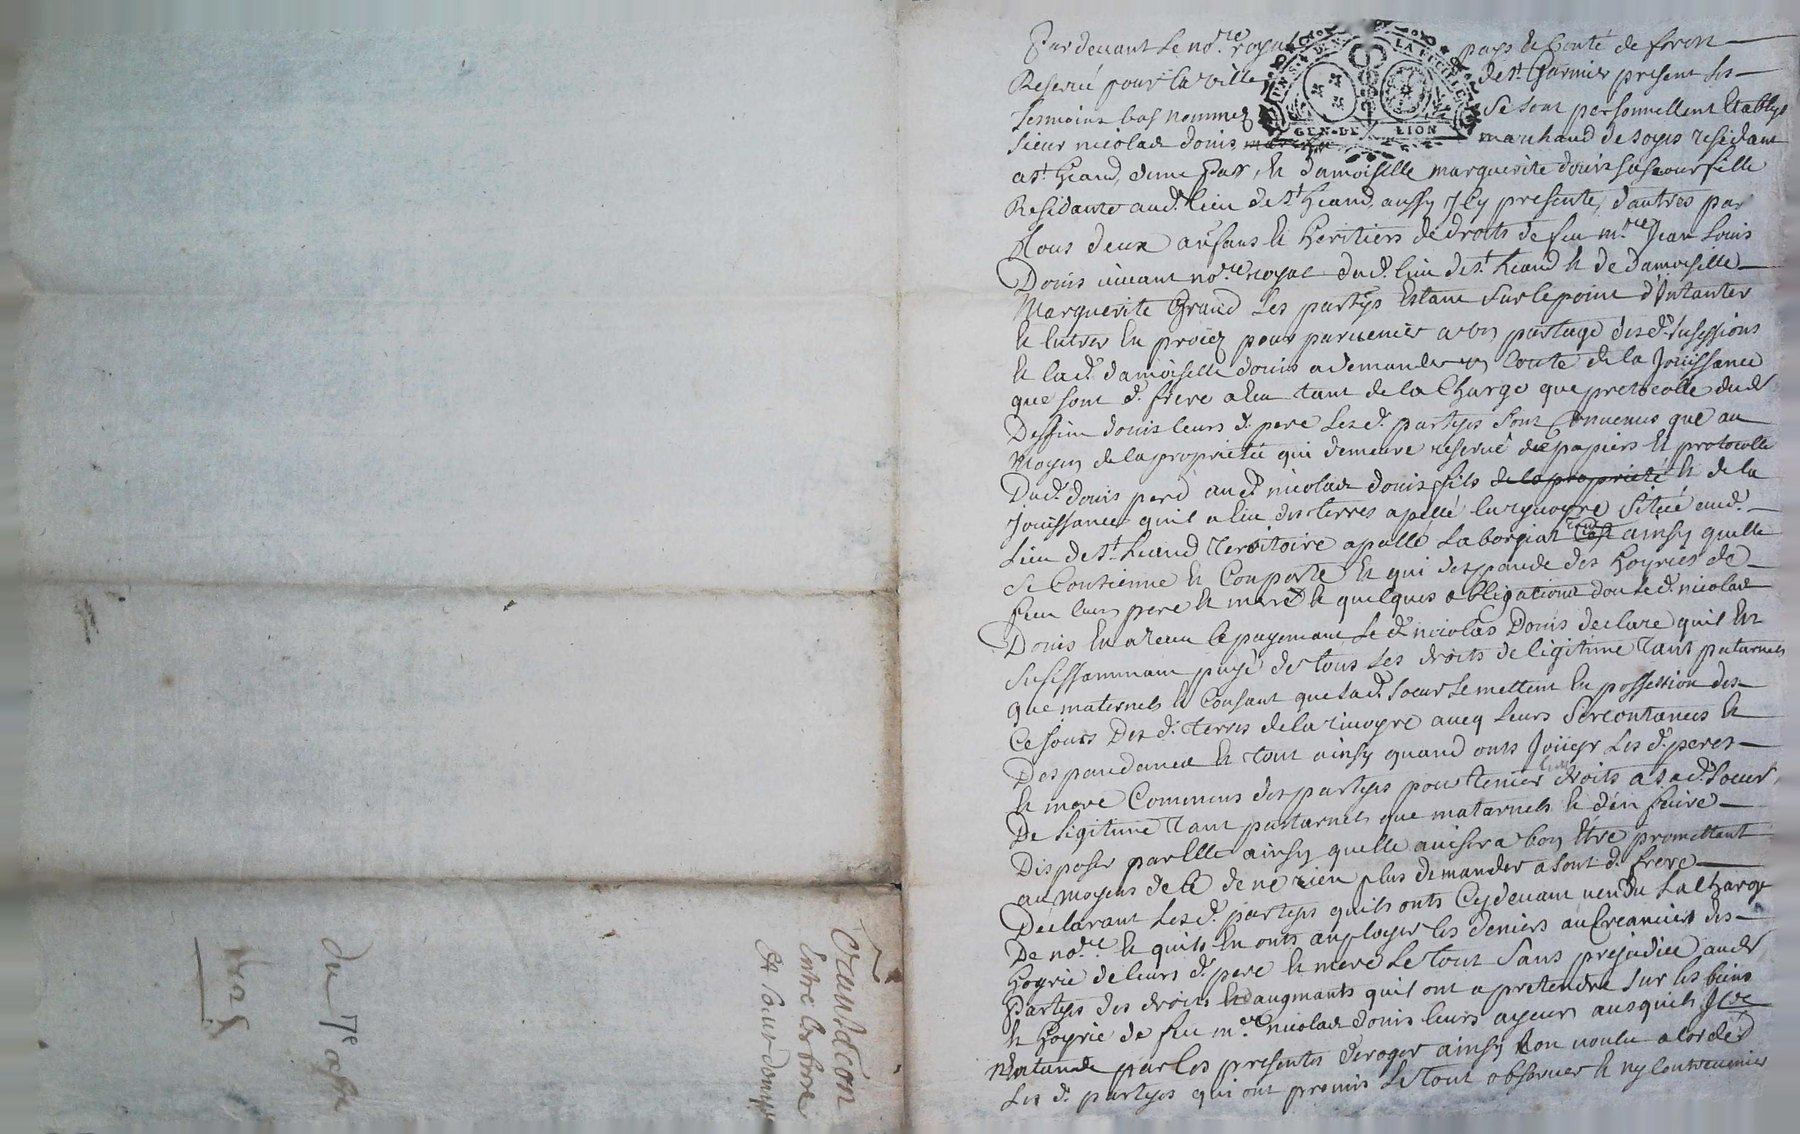 Pardevant le no.re royal pays & Conté de forest
Reservé pour la ville de st Garmier present les
tesmoins bas nommez se sont personnellement Etablys
sieur nicolas donis marchand de soyes residant
a st heand d'une part, & damoiselle marguerite donis sa soeur fille
Residante aud. lieu de st heand, aussy Icy presente, d'autres par
tous deux anfans & heritiers de droits de feu m.re Jean Louis
Donis vivant no.re royal dud. lieu de st heand & de damoiselle
Marguerite Grand Les partyes Estant sur le point d'Intanter
& Entrer En procez pour parvenir a un partage desd. susessions
& lad. damoiselle donis a demander un Conte de la Jouissance
que sont d. frere a Eu tant de la Charge que protocolle dud.
Deffun donis leurs d. pere Lesd. partyes sont Convenus que au
moyen de la proprietée qui demeure reservé des papiers & protocolle
Dud. donis pere aud. nicolas donis fils de la proprieté & de la
jouissance qu'il a Eu des terres apellé la rivoyre située aud.
Lieu de st heand Teroitoire apallé La borgiat tout ainsy quelle
se Contienne & Conporte & qui despande des hoyries de
feu leurs pere & mere & quelques obligations don le d. nicolas
Donis En a recu le payemant Le d. nicolas Donis declare qu'il Est
sufissammant payé de tous Les droits de ligitime tant paturnels
que maternels & Consant que sad. soeur se mettent En possession des
Ce jours Des d. terres de la rivoyre avecq leurs sirconstances &
Des pandances & tout ainsy quand onts Jouiyr Les d. peres
& mere Communs des partyes pour tenier lieu droits a sad. soeur
De ligitime tant paturnels que maturnels & d'en faire
Disposer par Elle ainsy quelle avisera bon Être promettant
au moyens de Ce de ne rien plus demander a sont d. frere
Declarant Les d. partyes quils onts Cydevant vendu La Charge
De no.re & quils En onts anployer les deniers au Creanciers des
hoyrie de leurs d. pere & mere Le tout sans prejudice aud.
Partyes des droits & daugmants quil ont a pretendre sur les biens
& hoyrie de feu m.re nicolas donis leurs ayeurs ausquels Ils
N'Entande par les presentes deroger ainsy Lon voulu a lordé
Les d. partyes qui ont promis Le tout observer & ny Contrevenier
GEN·DE LION
du 7e